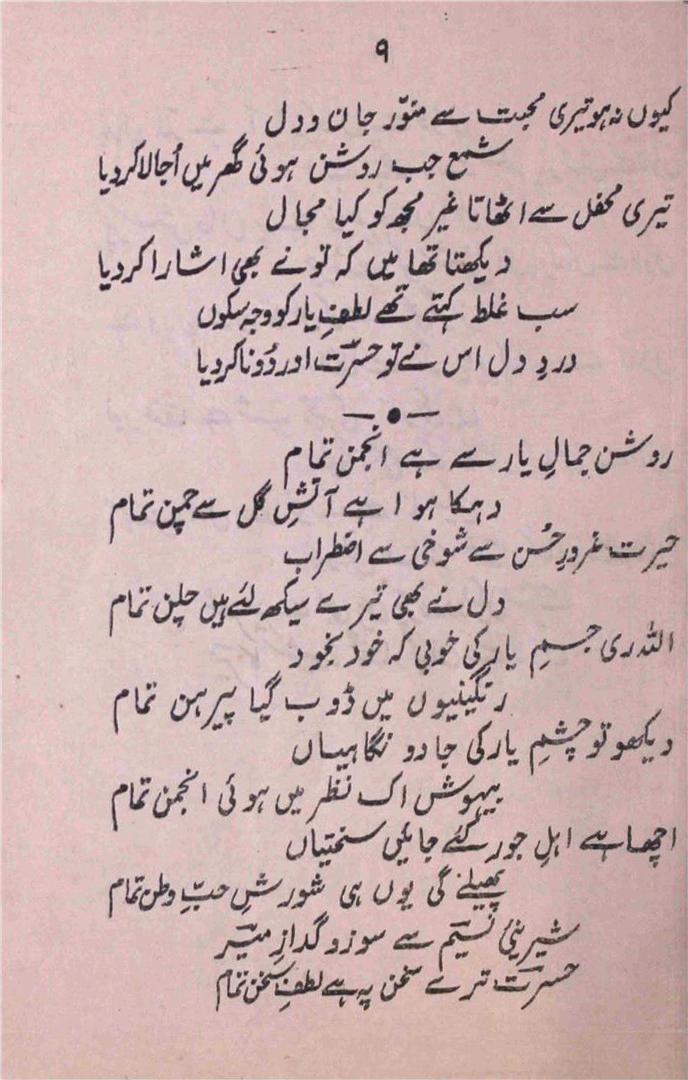 ۹
کیوں نہ ہو تیری محبت سے منوّر جان و دل
شمع جب روشن ہوئی گھر میں اُجالا کر دیا
تیری محفل سے اٹھاتا غیر مجھ کو کیا مجال
دیکھتا تھا میں کہ تو نے بھی اشارا کر دیا
سب غلط کہتے تھے لطفِ یار کو وجہِ سکوں
دردِ دل اس نے تو حسرتؔ اور دُونا کر دیا
روشن جمالِ یار سے ہے انجمن تمام
دہکا ہوا ہے آتشِ گل سے چمن تمام
حیرت غرورِ حُسن سے شوخی سے اضطراب
دل نے بھی تیرے سیکھ لئے ہیں چلن تمام
اللہ ری جسمِ یار کی خوبی کہ خود بخود
رنگینیوں میں ڈوب گیا پیرہن تمام
دیکھو تو چشمِ یار کی جادو نگاہیاں
بیہوش اک نظر میں ہوئی انجمن تمام
اچھا ہے اہلِ جور کئے جائیں سختیاں
پھیلے گی یوں ہی شورشِ حبِّ وطن تمام
شیرینئ نسیمؔ ہے سوز و گدازِ میرؔ
حسرتؔ ترے سخن پہ ہے لطفِ سخن تمام